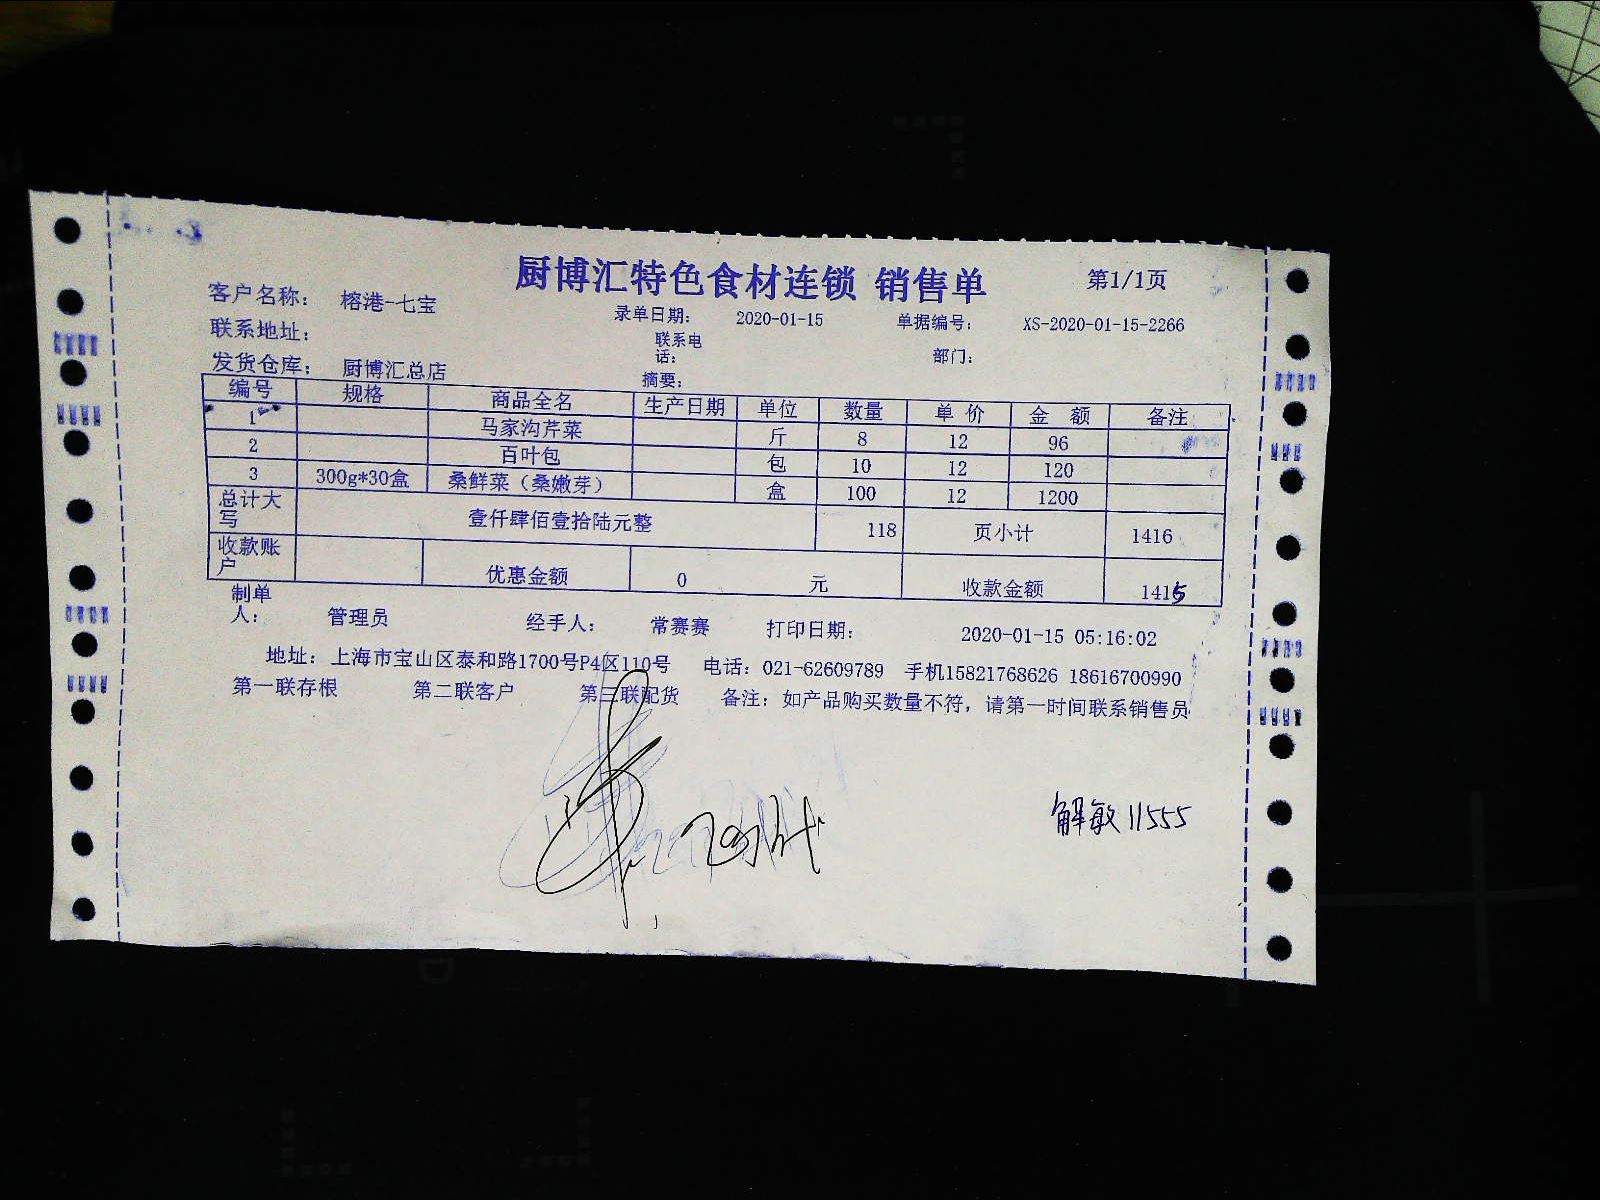 厨博汇特色食材连锁 销售单 第1/1页
客户名称： 榕港-七宝 录单日期： 2020-01-15 单据编号： XS-2020-01-15-2266
联系地址： 联系电话： 部门：
发货仓库： 厨博汇总店 摘要：
编号 规格 商品全名 生产日期 单位 数量 单 价 金 额 备注
1 马家沟芹菜 斤 8 12 96
2 百叶包 包 10 12 120
3 300g*30盒 桑鲜菜（桑嫩芽） 盒 100 12 1200
总计大写 壹仟肆佰壹拾陆元整 118 页小计 1416
收款账户 优惠金额 0 元 收款金额 1415
制单人： 管理员 经手人： 常赛赛 打印日期： 2020-01-15 05:16:02
地址：上海市宝山区泰和路1700号P4区110号 电话：021-62609789 手机15821768626 18616700990
第一联存根 第二联客户 第三联配货 备注：如产品购买数量不符，请第一时间联系销售员
解敏11555